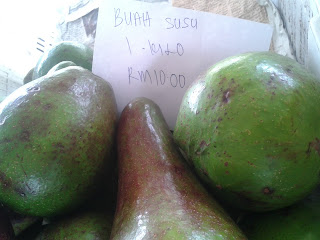 BUAH SUSU
1 - KILO
RM10 00